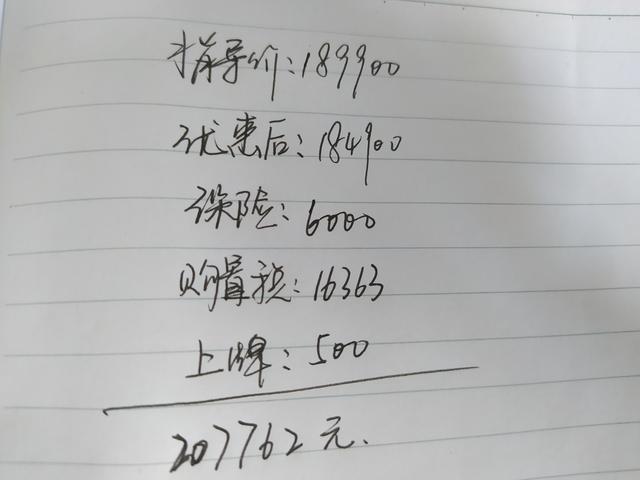 指导价:189900
优惠后:184900
保险:6000
购置税:16363
上牌:500
207762元.